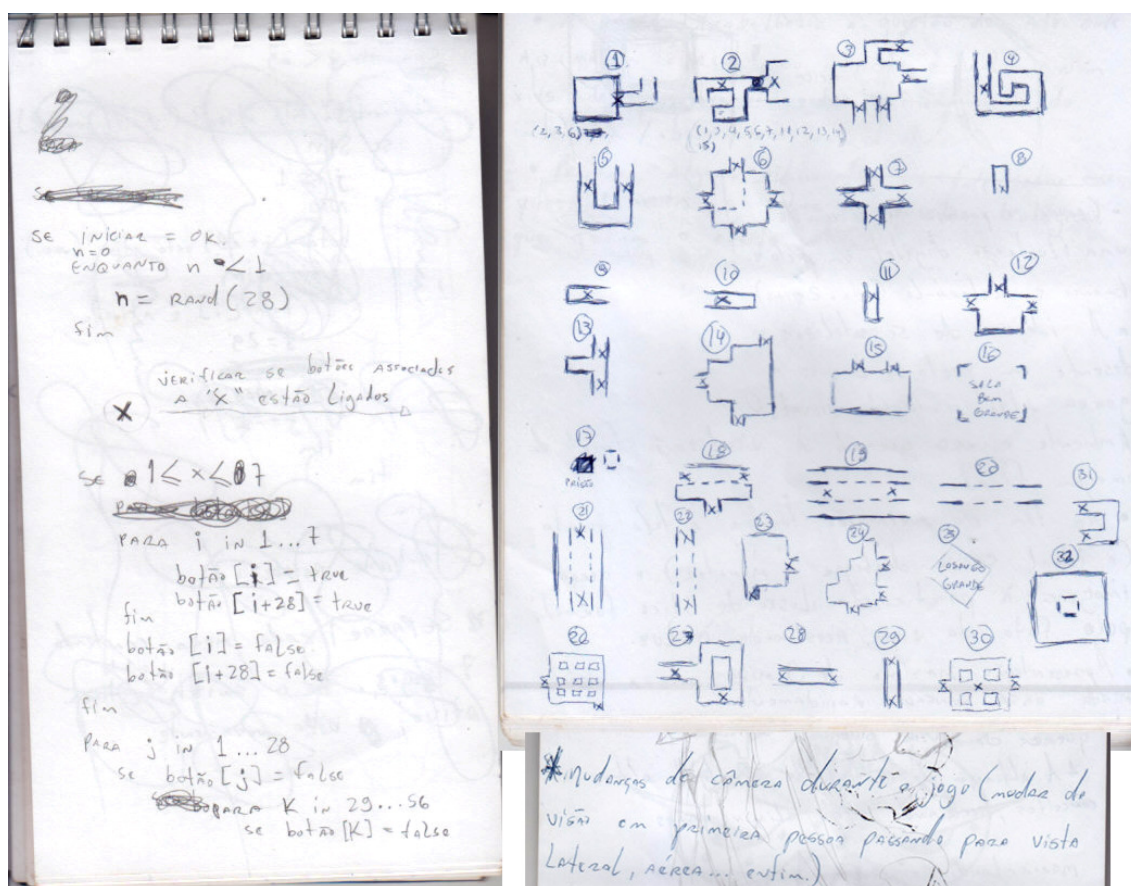 SE INICIAR = OK
n=0
ENQUANTO n < 1
n = RAND(28)
fim
VERIFICAR SE botões ASSOCIADOS
A "X" estão Ligados
X
SE 1 ≤ x ≤ 7
PARA i in 1...7
botão [i] = tRUE
botão [i+28] = tRUE
fim
botão [i] = fALSO
botão [i+28] = fALSO
fim
PARA j in 1...28
SE botão [j] = fALSO
PARA K in 29...56
SE botão [K] = fALSO
1 2 3 4
(2, 3, 6)
(1, 3, 4, 5, 6, 7, 11, 12, 13, 14
15)
5 6 7 8
9 10 11 12
13 14 15 16
SALA
BEM
GRANDE
17 18 19 20 31
PRISÃO
21 22 23 24 25 32
LOSANGO
GRANDE
26 27 28 29 30
*MUDANÇAS DE CÂMERA DURANTE O JOGO (MUDAR DE
VISÃO EM PRIMEIRA PESSOA PASSANDO PARA VISTA
LATERAL, AÉREA... ENFIM.)